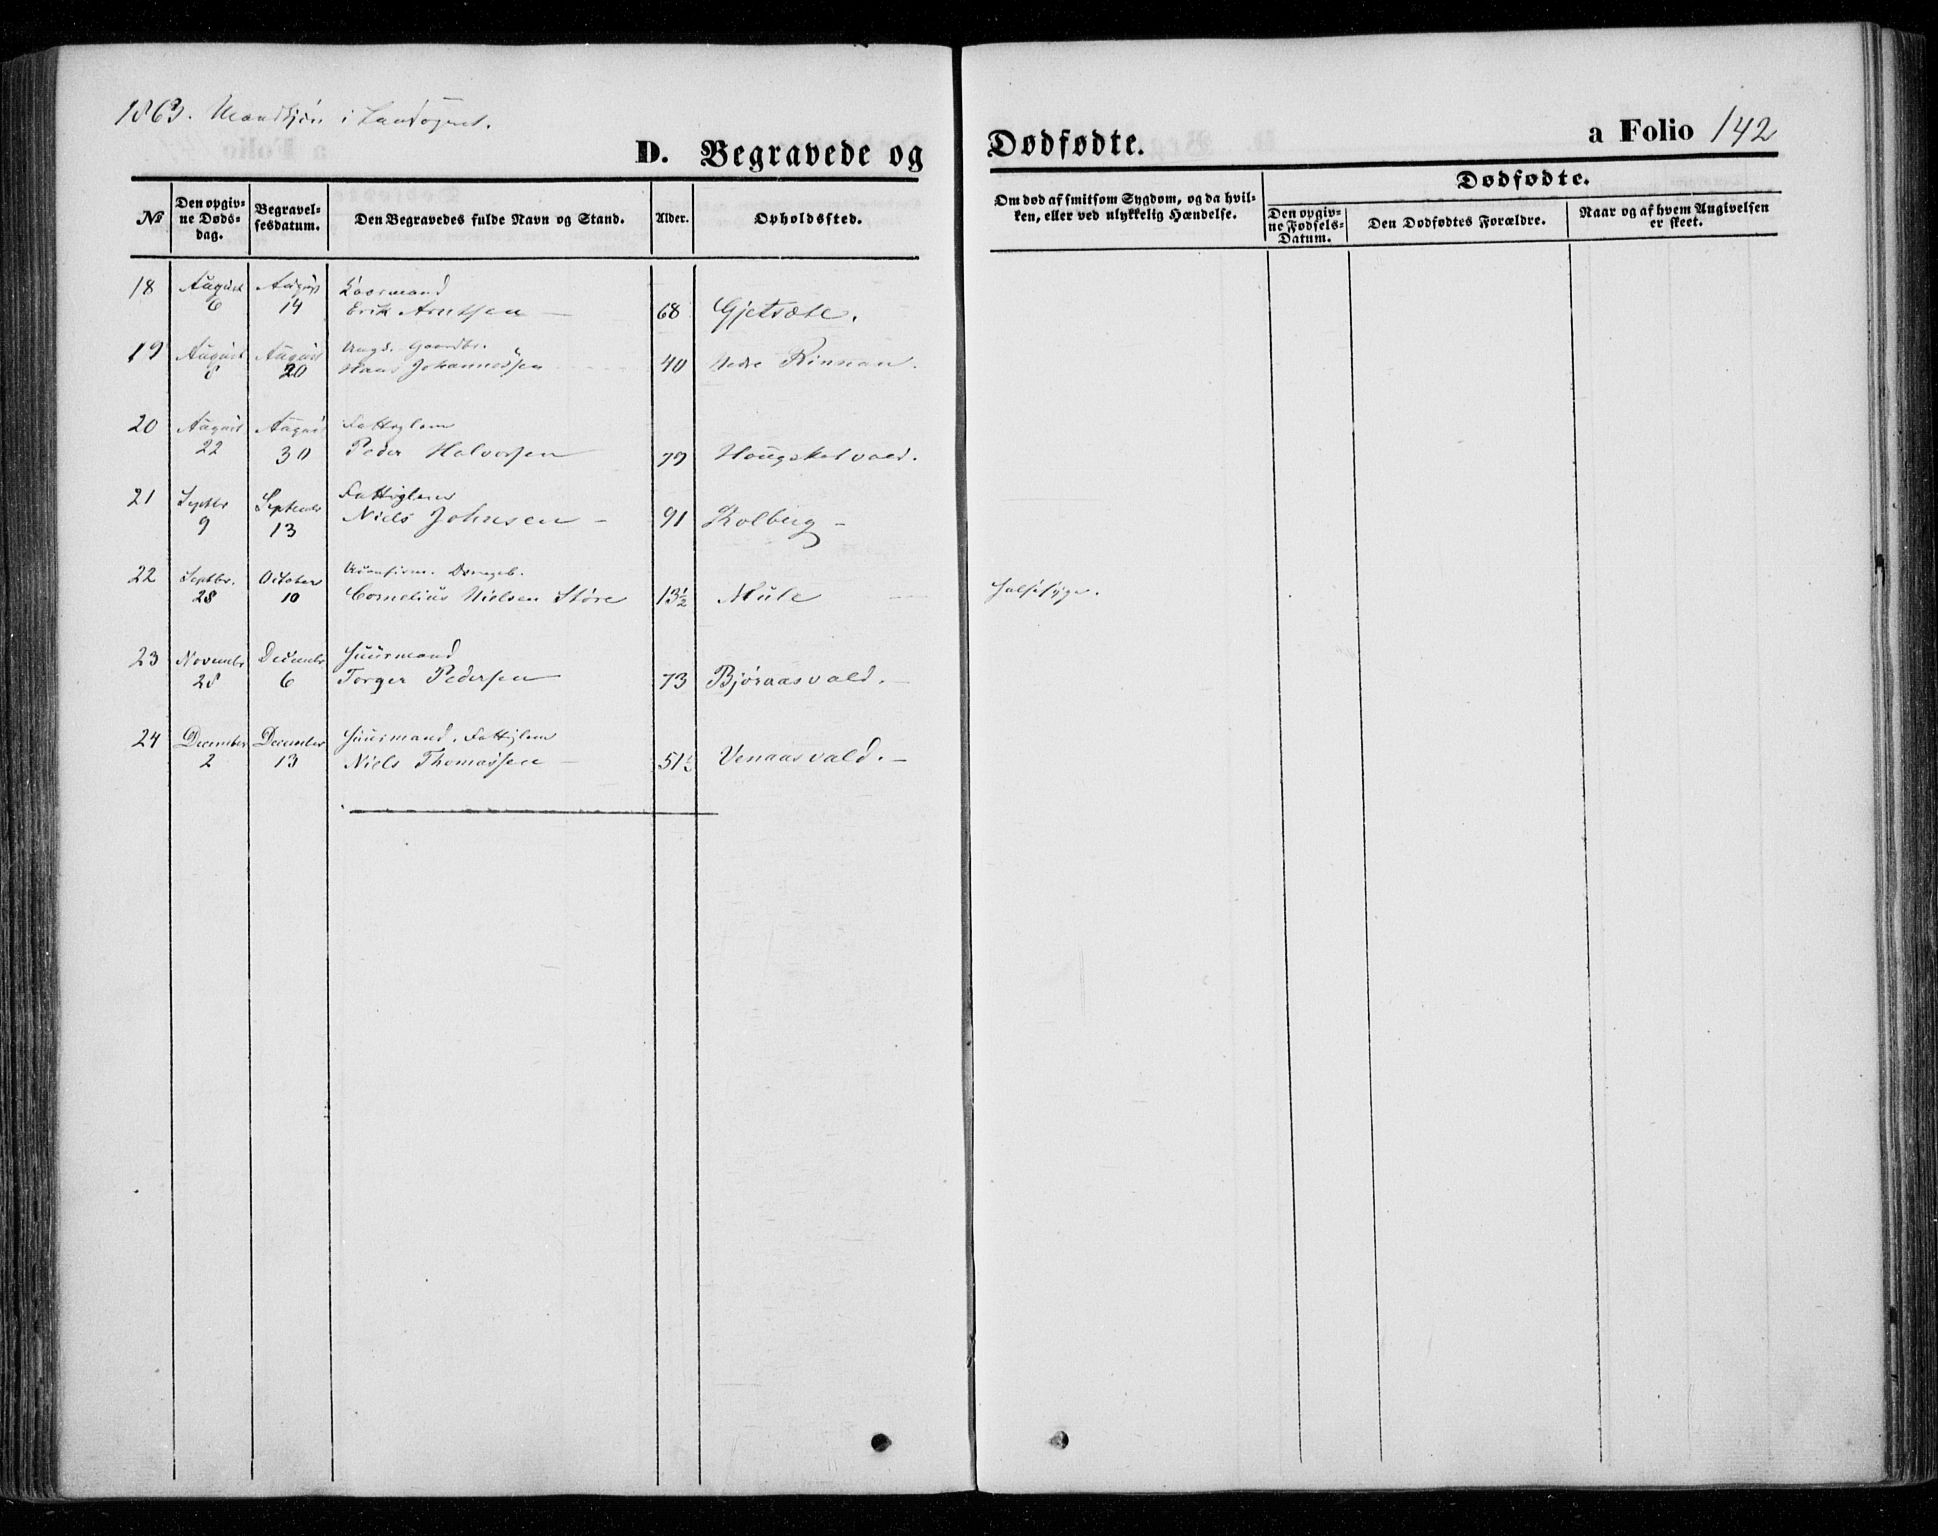 1863. Mandkjøn i Landsognet.
D. Begravede og Dødfødte.
a Folio 142
No
Den opgivne Døds-dag.
Begravelsesdatum.
Den Begravedes fulde Navn og Stand.
Alder.
Opholdssted.
Om død af smitsom Sygdom, og da hvilken, eller ved ulykkelig Hændelse.
Dødfødte.
Den opgivne Fødsels-Datum.
Den Dødfødtes Forældre.
Naar og af hvem Angivelsen er skeet.
18 August 6 August 14 Kaarmand
Erik Arntsen — 68 Gjetvæte.
19 August 8 August 20 Ungk. Gaardbr.
Hans Johannessen 40 Nedre Rinnan.
20 August 22 August 30 Fattiglem
Peder Halvorsen 79 Hougskotvald.
21 Septbr 9 September 13 Fattiglem
Niels Johnsen — 91 Kolberg —
22 Septbr. 28 October 10 Ukonfirm. Drengeb.
Cornelius Nielsen Støre 13½ Mule — Halssyge.
23 November 28 December 6 Huusmand
Torger Pedersen 73 Bjøraasvald. —
24 December 2 December 13 Huusmand. Fattiglem
Niels Thomassen — 51½ Venaasvald. —